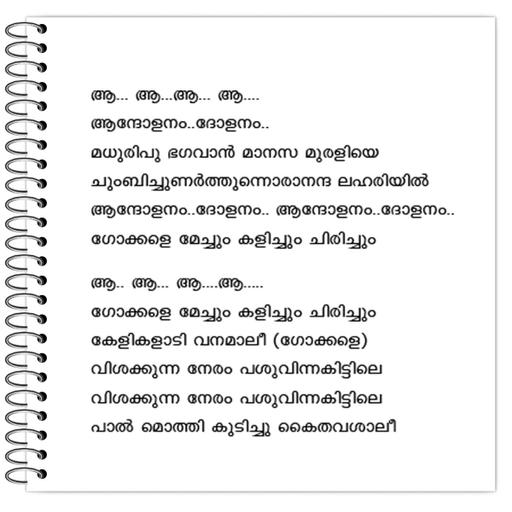 ആ... ആ...ആ... ആ....
ആന്ദോളനം..ദോളനം..
മധുരിപു ഭഗവാൻ മാനസ മുരളിയെ
ചുംബിച്ചുണർത്തുന്നൊരാനന്ദ ലഹരിയിൽ
ആന്ദോളനം..ദോളനം.. ആന്ദോളനം..ദോളനം..
ഗോക്കളെ മേച്ചും കളിച്ചും ചിരിച്ചും
ആ.. ആ... ആ....ആ.....
ഗോക്കളെ മേച്ചും കളിച്ചും ചിരിച്ചും
കേളികളാടി വനമാലീ (ഗോക്കളെ)
വിശക്കുന്ന നേരം പശുവിന്നകിട്ടിലെ
വിശക്കുന്ന നേരം പശുവിന്നകിട്ടിലെ
പാൽ മൊത്തി കുടിച്ചു കൈതവശാലീ